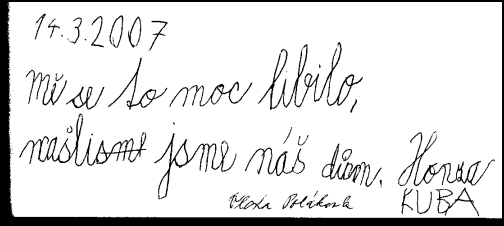 14.3.2007
mě se to moc líbilo,
našli jsme náš dům. Honza
KUBA